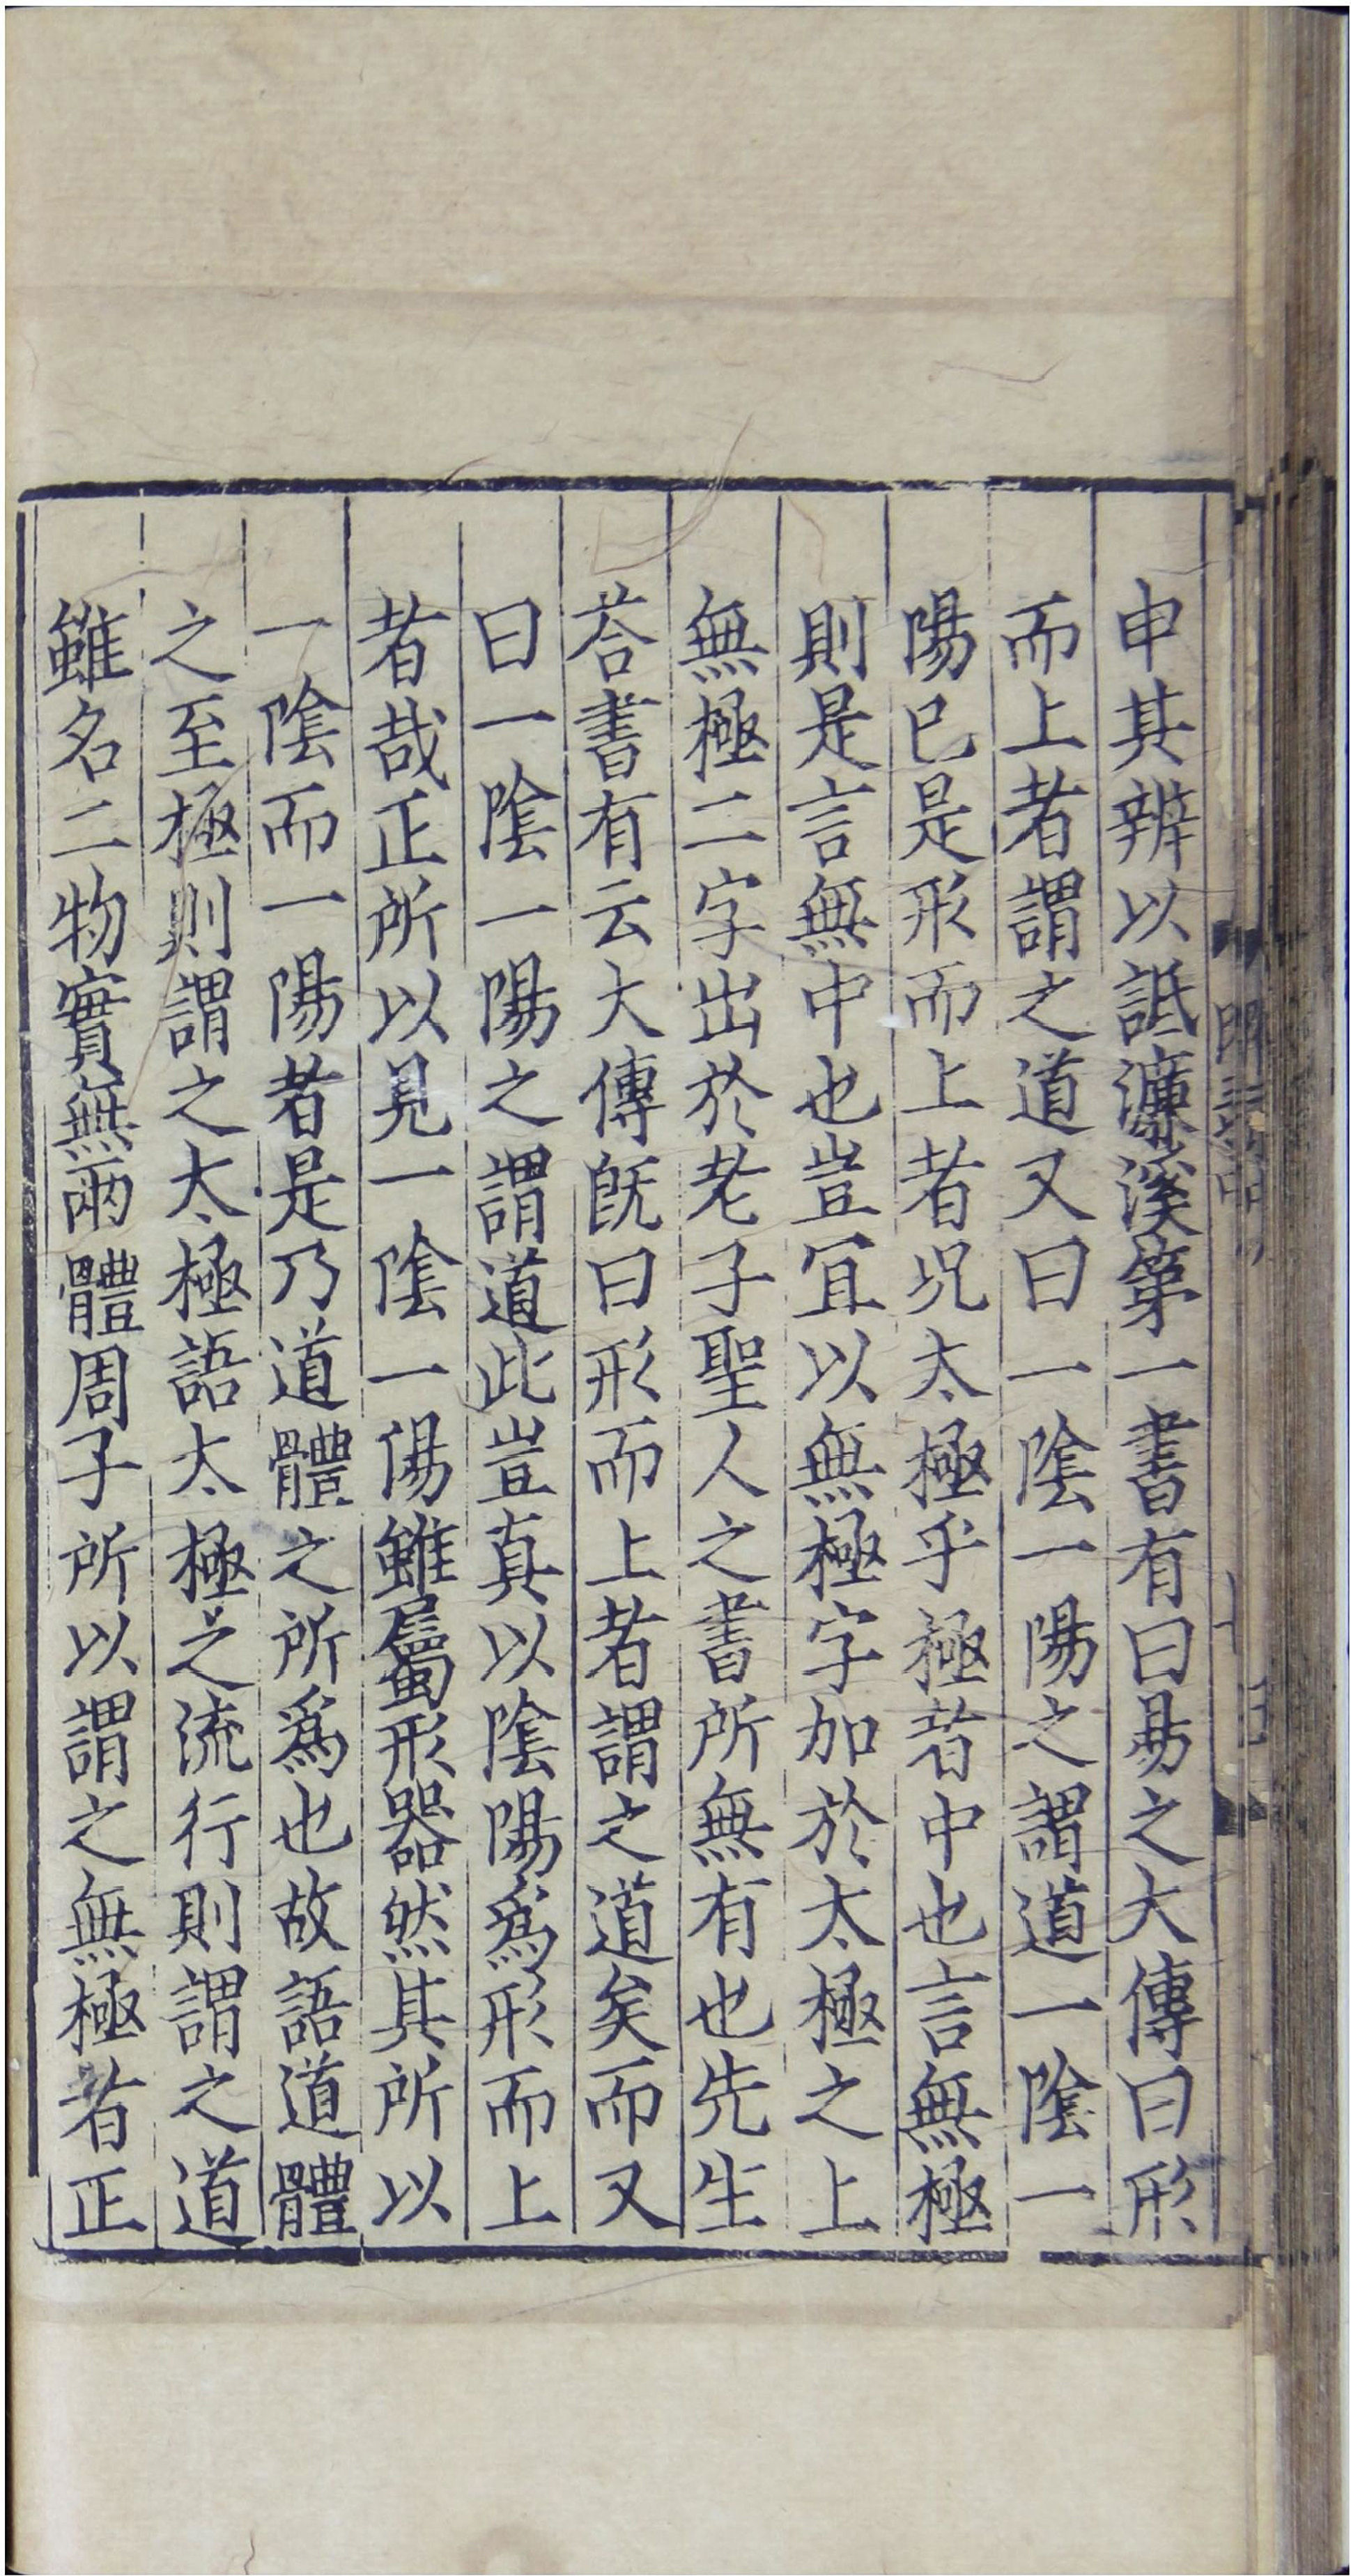 申其辨以詆濂溪第一書有曰易之大傳曰形
而上者謂之道又曰一陰一陽之謂道一陰一
陽已是形而上者况太極乎極者中也言無極
則是言無中也豈冝以無極字加於太極之上
無極二字出於老子聖人之書所無有也先生
荅書有云大傳旣曰形而上者謂之道矣而又
曰一陰一陽之謂道此豈真以陰陽爲形而上
者哉正所以見一陰一陽雖屬形器然其所以
一陰而一陽者是乃道體之所爲也故語道體
之至極則謂之太極語太極之流行則謂之道
雖名二物實無兩體周子所以謂之無極者正